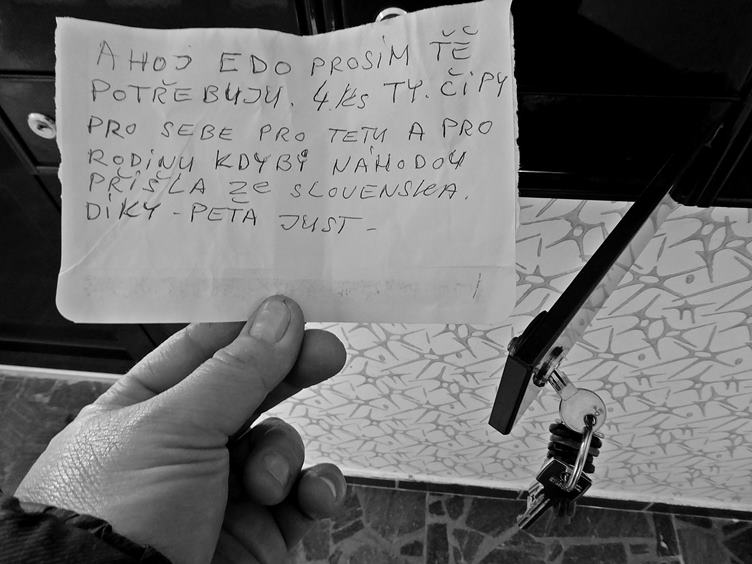 AHOJ EDO PROSÍM TĚ
POTŘEBUJU. 4 ks TY. ČIPY
PRO SEBE PRO TETU A PRO
RODINU KDYBY NÁHODOU
PŘIŠLA ZE SLOVENSKA.
DÍKY - PEŤA JUST -